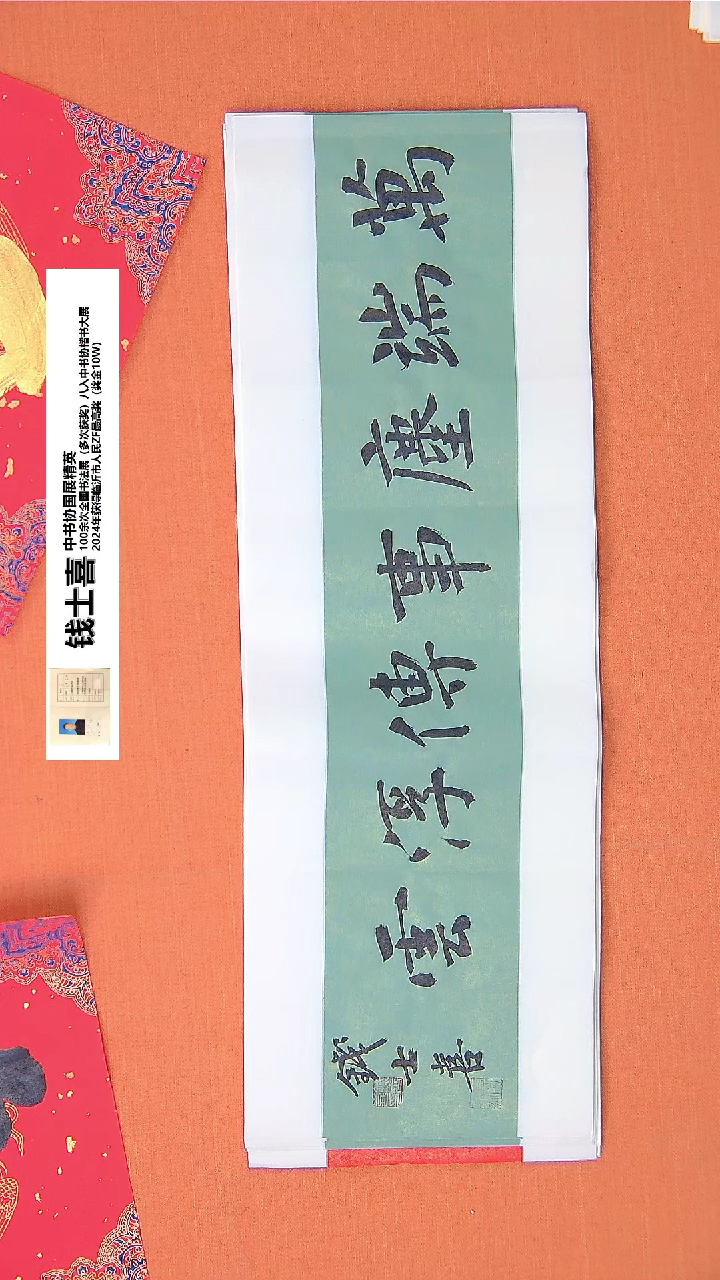 萬端塵事傳浮雲
錢士喜
钱士喜
中书协国展精英
100余次全国书法展（多次获奖）八入中书协楷书大展
2024年获得临沂市人民ZF最高奖（奖金10W）